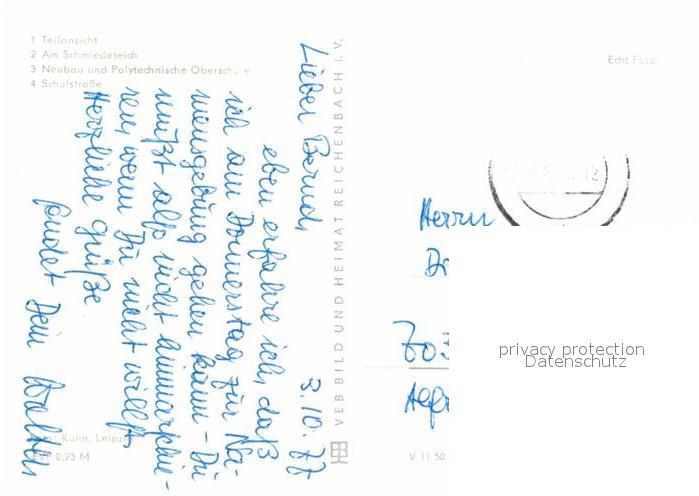 1 Teilansicht
2 Am Schmiedeteich
3 Neubau und Polytechnische Obersch e
4 Schulstraße
Echt Foto
3.10.77
Lieber Bernd,
eben erfahre ich, daß
ich am Donnerstag zur Na-
mensgebung gehen kann - Du
mußt also nicht einmarschie-
ren, wenn Du nicht willst.
Herzliche Grüße
sendet Dein Walter
VEB BILD UND HEIMAT REICHENBACH I. V.
Herrn
Dr
703
privacy protection
Datenschutz
Kühn, Leipzig
EVP 0,25 M
V 11 50